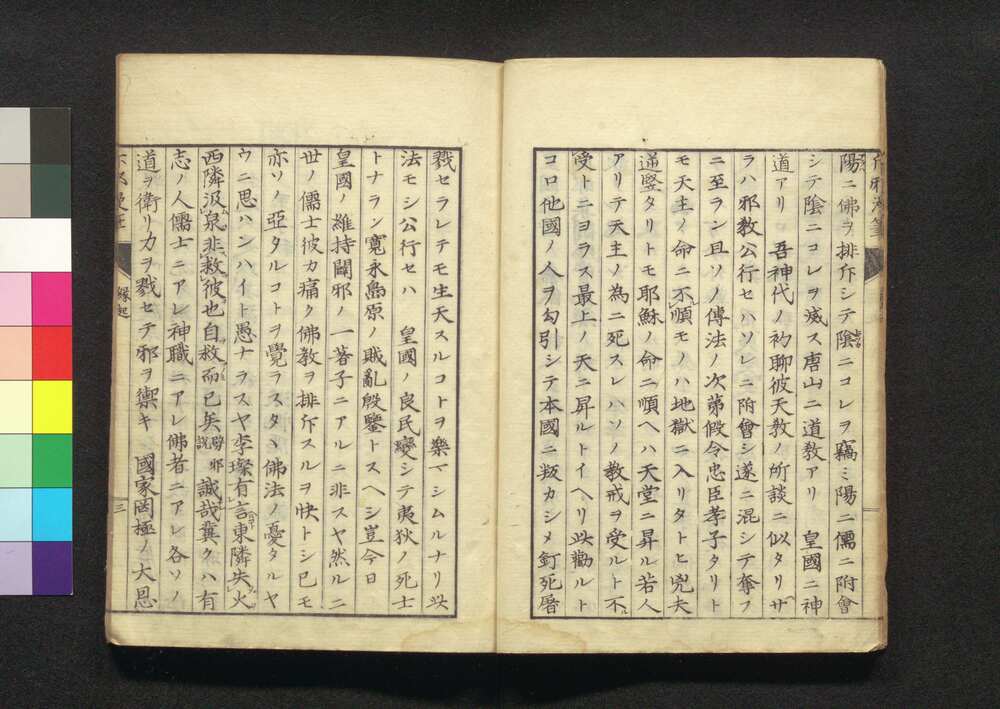 陽ニ佛ヲ排斥シテ陰ニコレヲ竊ミ陽ニ儒ニ附會
シテ陰ニコレヲ滅ス唐山ニ道教アリ　皇國ニ神
道アリ　吾神代ノ初聊彼天教ノ所談ニ似タリサ
ラハ邪教公行セハソレニ附會シ遂ニ混シテ奪フ
ニ至ラン且ソノ傳法ノ次第假令忠臣孝子タリト
モ天主ノ命ニ不順モノハ地獄ニ入リタトヒ兇夫
逆豎タリトモ耶穌ノ命ニ順ヘハ天堂ニ昇ル若人
アリテ天主ノ為ニ死スレハソノ教戒ヲ受ルト不
受トニヨラス最上ノ天ニ昇ルトイヘリ此勸ルト
コロ他國ノ人ヲ勾引シテ本國ニ叛カシメ釘死屠
戮セラレテモ生天スルコトヲ樂マシムルナリ此
法モシ公行セハ　皇國ノ良民變シテ夷狄ノ死士
トナラン寛永島原ノ賊亂殷鑒トスヘシ豈今日
皇國ノ維持闢邪ノ一著子ニアルニ非スヤ然ルニ
世ノ儒士彼カ痛ク佛教ヲ排斥スルヲ快トシ已モ
亦ソノ亞タルコトヲ覺ラスタヽ佛法ノ憂タルヤ
ウニ思ハンハイト愚ナラスヤ李璨有言東隣失火
西隣汲泉非救彼也自救而已矣闢邪説誠哉冀クハ有
志ノ人儒士ニアレ神職ニアレ佛者ニアレ各ソノ
道ヲ衛リ力ヲ戮セテ邪ヲ禦キ　國家罔極ノ大恩
縁起
三